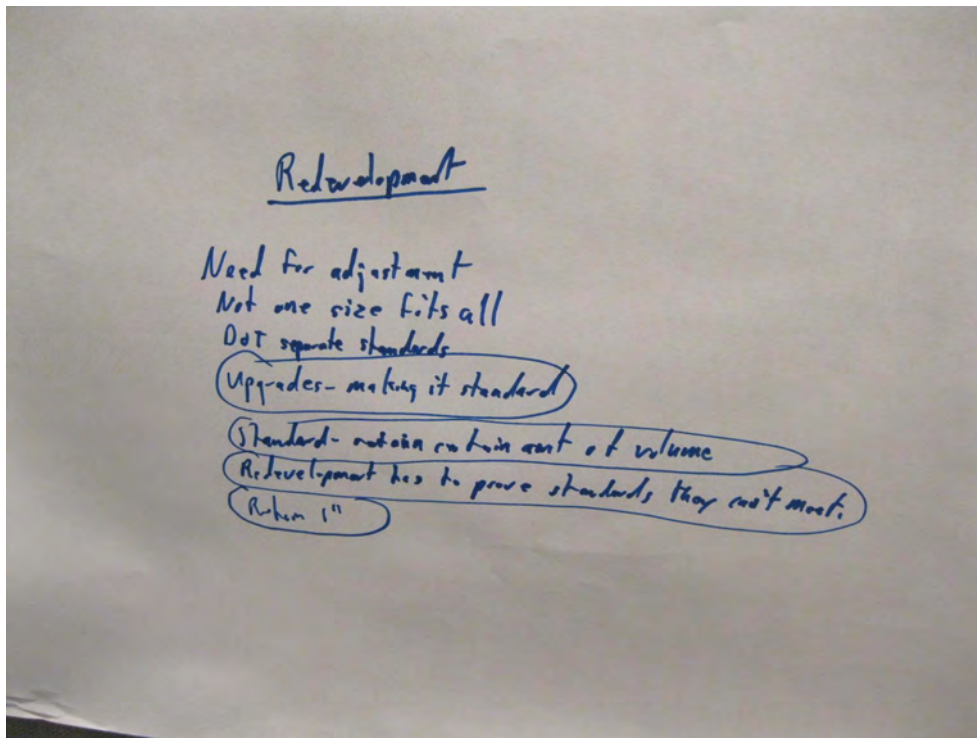 Redevelopment
Need for adjustment
Not one size fits all
DOT separate standards
Upgrades - making it standard
Standard - retain certain amt of volume
Redevelopment has to prove standards they can't meet.
Retain 1"